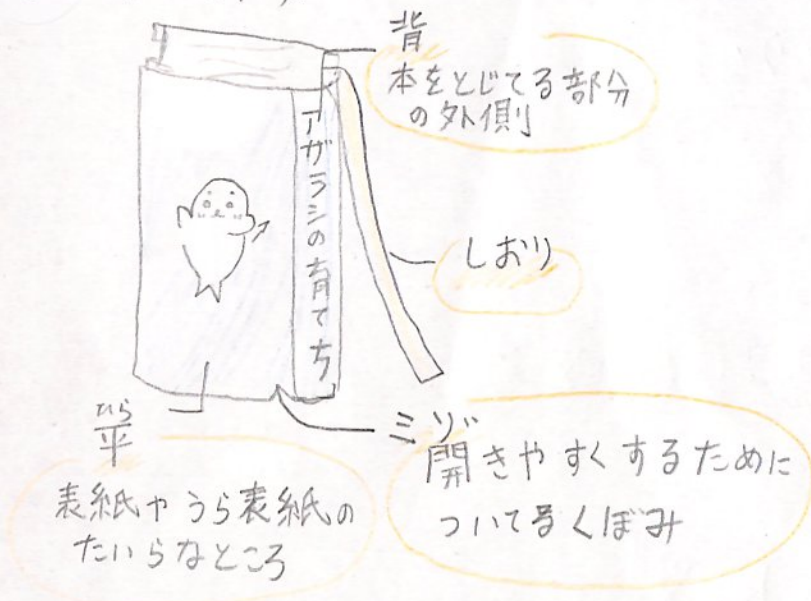 背
本をとじてる部分
の外側
アザラシの育て方
しおり
ひら
平
表紙やうら表紙の
たいらなところ
ミゾ
開きやすくするために
ついてるくぼみ